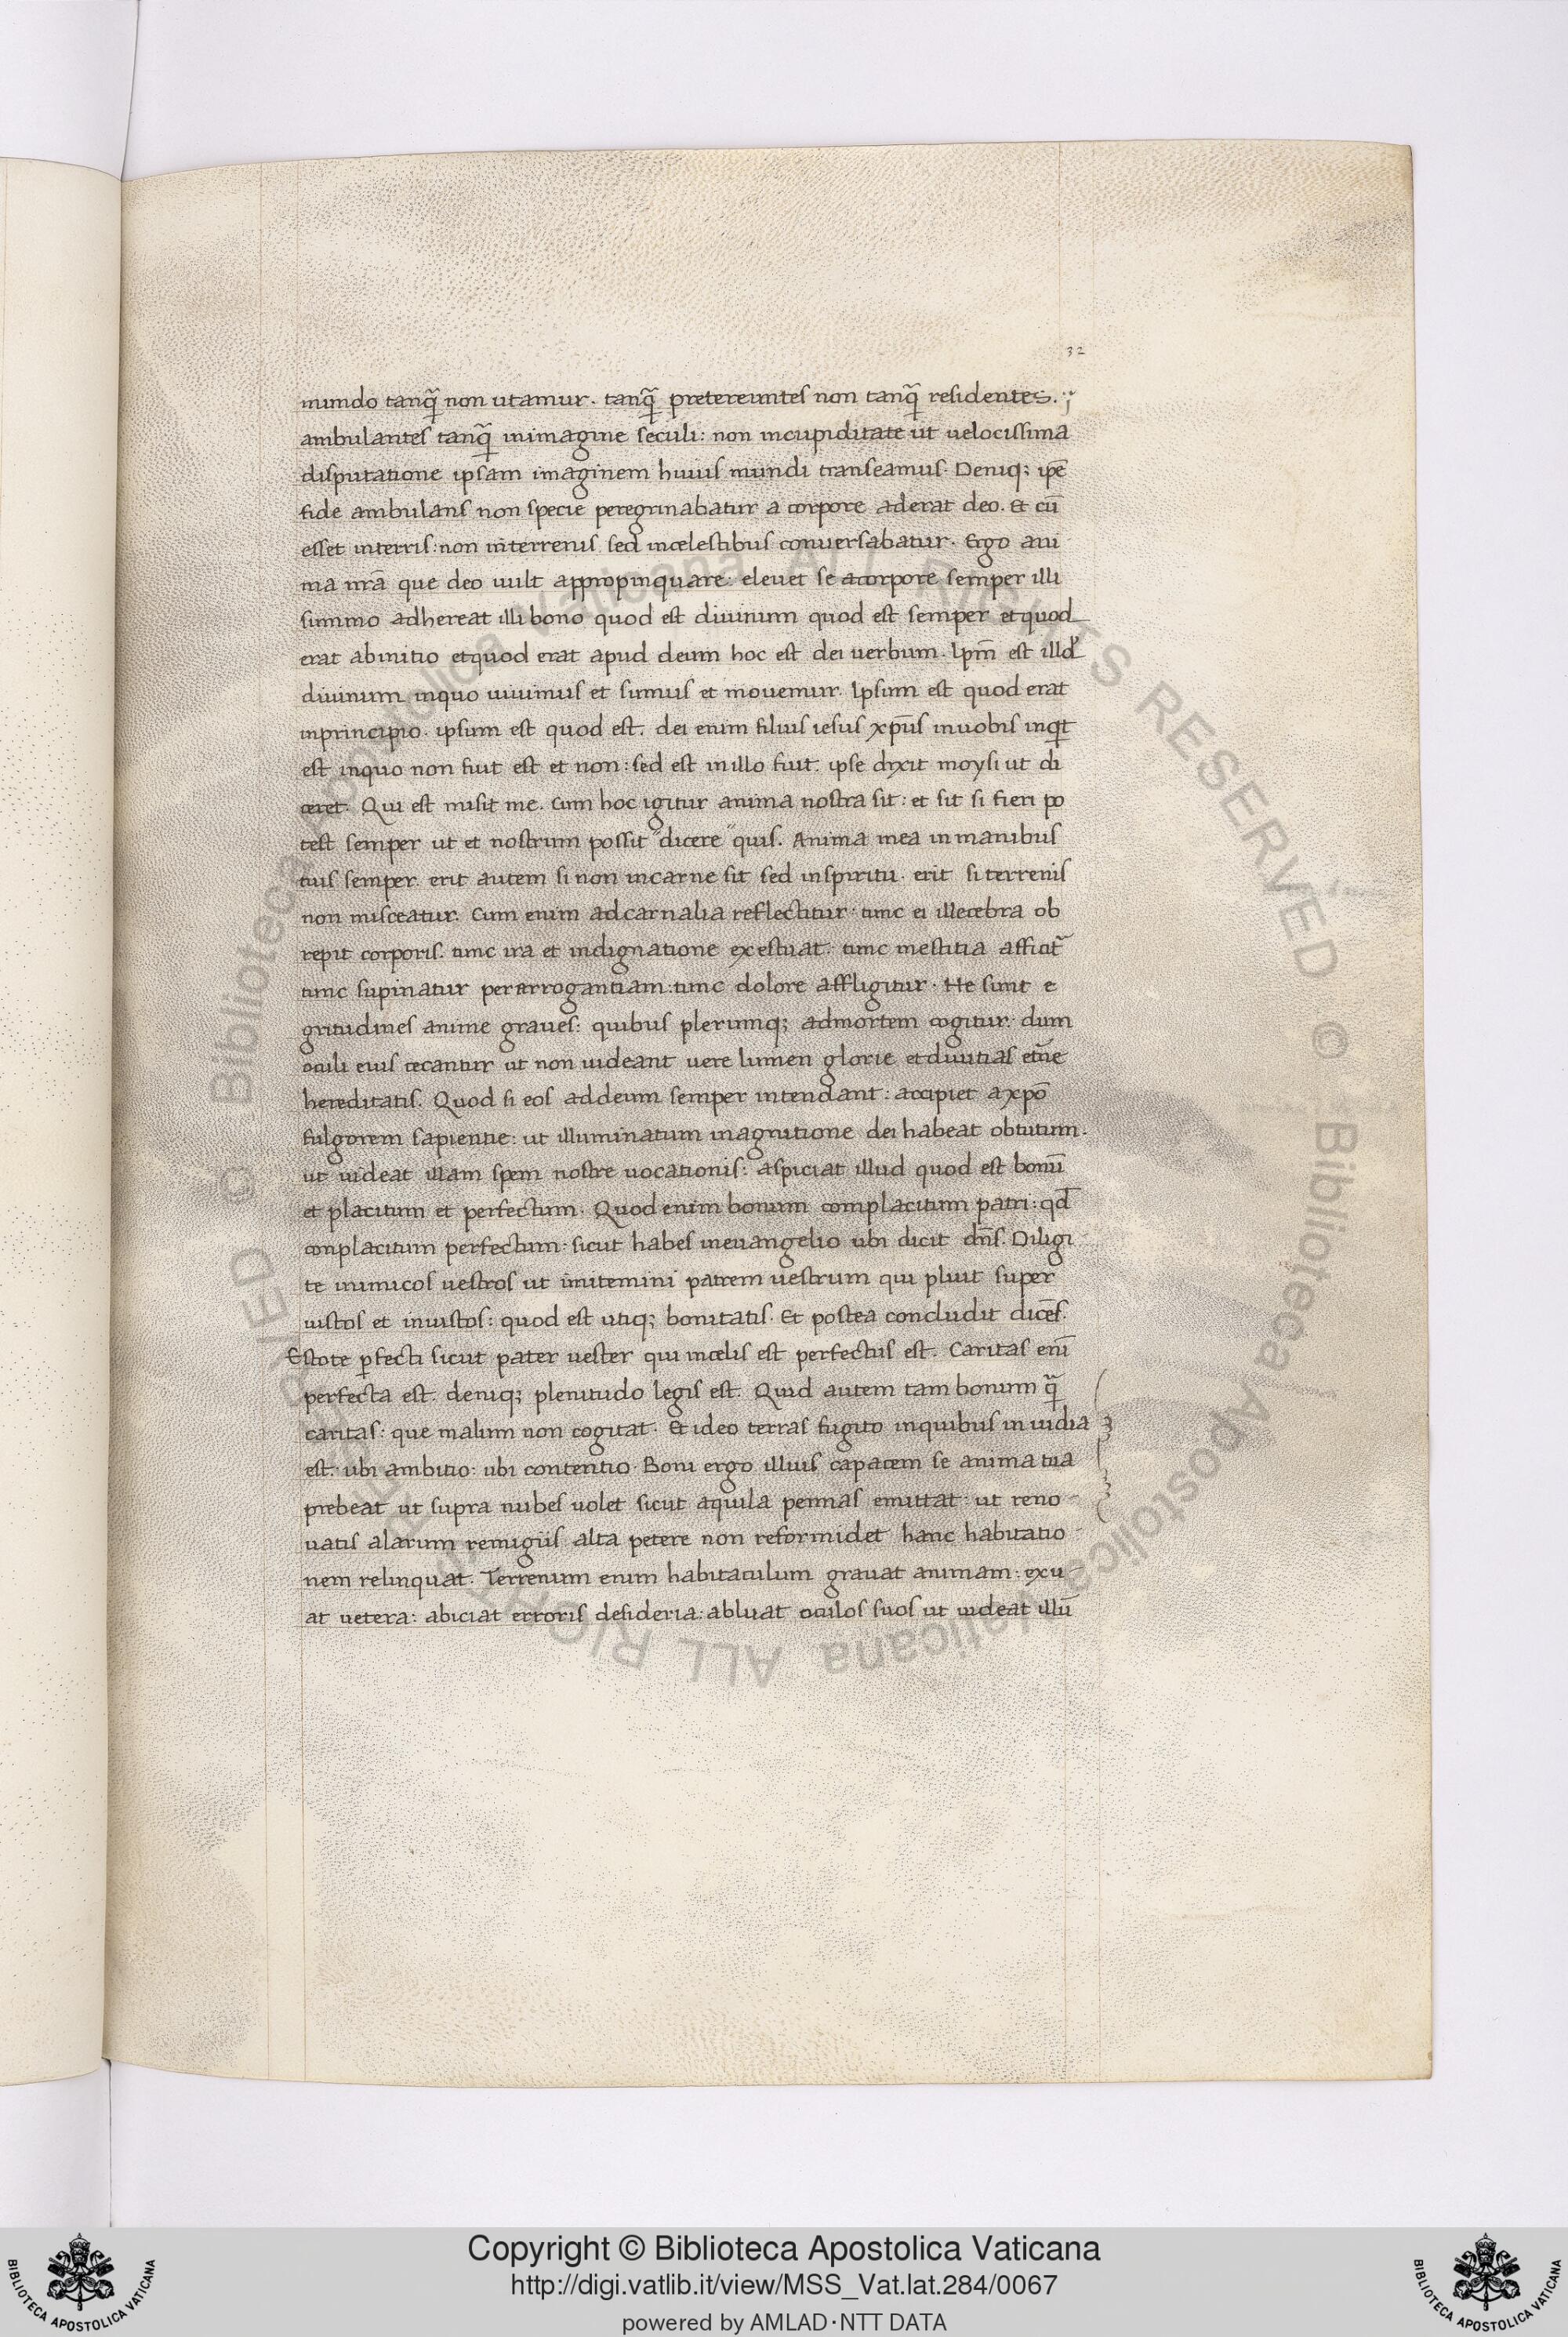 32
mundo tanq̃ non utamur. tanq̃ pretereuntes non tanq̃ residentes.
ambulantes tanq̃ inimagine seculi: non incupiditate ut uelocissima
disputatione ipsam imaginem huius mundi transeamus. Deniq; ip̄e
fide ambulans non specie peregrinabatur a corpore aderat deo. Et cū
esset interris: non interrenis sed incelestibus conuersabatur. Ergo ani
ma nr̄a que deo uult appropinquare: eleuet se acorpore semper illi
summo adhereat illi bono quod est diuinum quod est semper etquod
erat abinitio etquod erat apud deum hoc est dei uerbum. Ipm̄ est illd
diuinum inquo uiuimus et sumus et mouemur. Ipsum est quod erat
inprincipio. ipsum est quod est. dei enim filius iesus xp̄us inuobis inqt
est inquo non fuit est et non: sed est in illo fuit. ipse dixit moysi ut di
ceret. Qui est misit me. Cum hoc igitur anima nostra sit: et sit si fieri po
test semper ut et nostrum possit "dicere" quis. Anima mea in manibus
tuis semper. erit autem si non incarne sit sed inspiritu. erit si terrenis
non misceatur. Cum enim adcarnalia reflectitur: tunc ei illecebra ob
repit corporis. tunc ira et indignatione exestuat. tunc mestitia afficit̃
tunc supinatur perarrogantiam: tunc dolore affligitur. He sunt e
gritudines anime graues: quibus plerumq; admortem cogitur. dum
oculi eius cecantur ut non uideant uere lumen glorie etdiuitias et̄ne
hereditatis. Quod si eos addeum semper intendant: accipiet axpo̅
fulgorem sapientie: ut illuminatum inagnitione dei habeat obtutum.
ut uideat illam spem nostre uocationis: aspiciat illud quod est bonū
et placitum et perfectum. Quod enim bonum complacitum patri: qd̄
conplacitum perfectum. sicut habes ineuangelio ubi dicit dn̄s. Diligi
te inimicos uestros ut imitemini patrem uestrum qui pluit super
iustos et iniustos: quod est utiq; bonitatis. Et postea concludit dicēs.
Estote ꝑfecti sicut pater uester qui incelis est perfectus est. Caritas eni̅
perfecta est. deniq; plenitudo legis est. Quid autem tam bonum q̃
caritas: que malum non cogitat. Et ideo terras fugito inquibus inuidia
est. ubi ambitio: ubi contentio. Boni ergo illius capacem se anima tua
prebeat ut supra nubes uolet sicut aquila pennas emittat: ut reno-
uatis alarum remigiis alta petere non reformidet hanc habitatio-
nem relinquat. Terrenum enim habitaculum grauat animam: exu-
at uetera: abiciat erroris desideria: abluat oculos suos ut uideat illū
Copyright © Biblioteca Apostolica Vaticana
http://digi.vatlib.it/view/MSS_Vat.lat.284/0067
powered by AMLAD·NTT DATA
BIBLIOTECA APOSTOLICA VATICANA
BIBLIOTECA APOSTOLICA VATICANA
© Biblioteca Apostolica Vaticana ALL RIGHTS RESERVED © Biblioteca Apostolica Vaticana ALL RIGHTS RESERVED